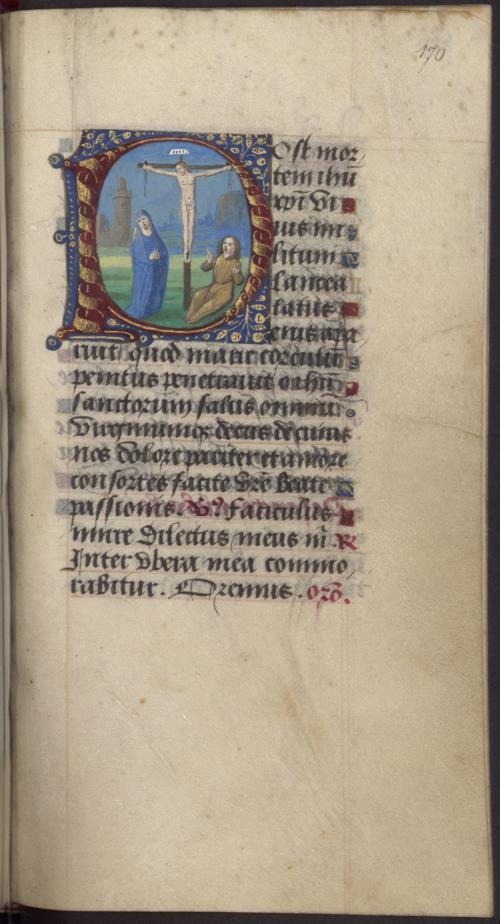 170
Post mor
tem ihū
xpī vn
nus mi
litum
lancea
latus
eius ape
ruit quod marie
penitus penetrauit o ihū
sanctorum salus omniū
virginumq3 decus de cuius
nos dolore pariter et amore
consortes facite vrē beate
passionis. V. Faciculus
mirre dilectus meus m̄. R
Inter vbera mea commo
rabitur. Oremus. orō.